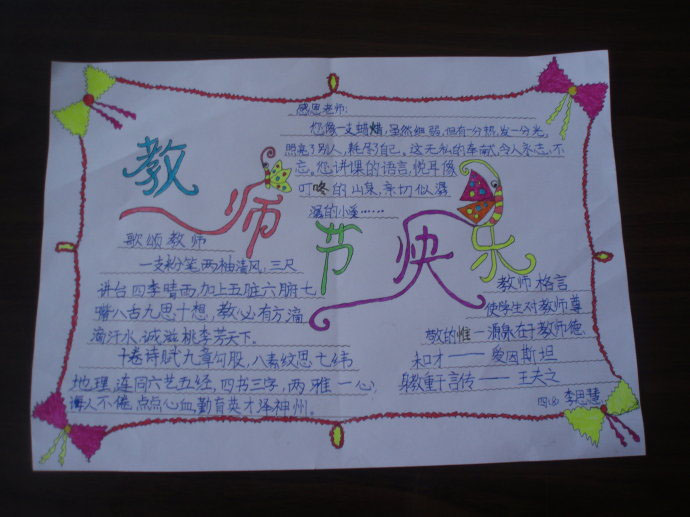 感恩老师:
您像一支蜡烛,虽然细弱,但有一分热,发一分光,
照亮了别人,耗尽了自己。这无私的奉献,令人永志,不
忘。您讲课的语言,悦耳像
叮咚的山泉,亲切似潺
潺的小溪……
教师节快乐
歌颂教师
一支粉笔两袖清风,三尺
讲台四季晴雨,加上五脏六腑七
嘴八舌九思十想,教必有方滴
滴汗水,诚滋桃李芳天下。
十卷诗赋九章勾股,八索纹思七纬
地理,连同六艺五经,四书三字,两雅一心,
诲人不倦,点点心血,勤育英才泽神州。
教师格言
使学生对教师尊
敬的惟一源泉在于教师德
和才——爱因斯坦
身教重于言传——王夫之
李思慧